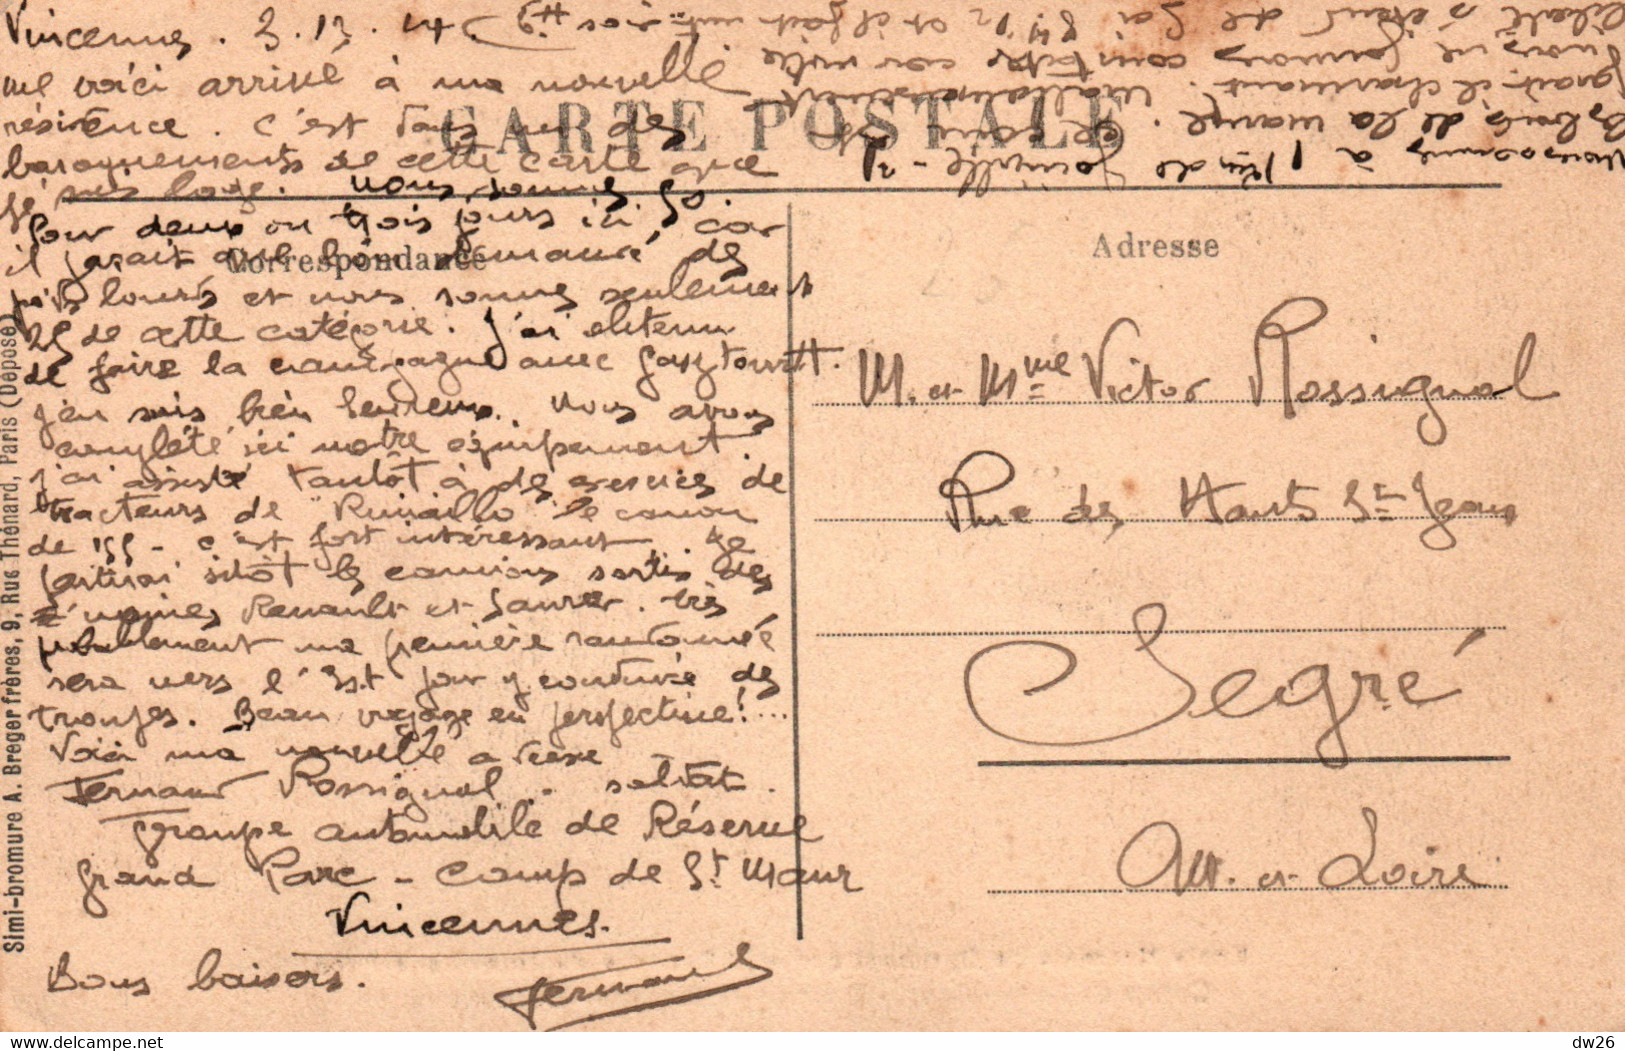 Vincennes. 3. 12. 14.
me voici arrivé à ma nouvelle
résidence. C'est dans un des
baraquements de cette carte que
je suis logé. Nous sommes 50
pour deux ou trois jours ici car
il parait que l'on demande des
poids lourds et nous sommes seulement
25 de cette catégorie. J'ai obtenu
de faire la campagne avec
j'en suis bien heureux. Nous avons
complété ici notre équipement
j'ai assisté tantôt à des exercices de
tracteurs de "Rimailho" le canon
de 155 - c'est fort intéressant. Je
partirai sitôt les camions sortis des
usines Renault et Saurer. Très
probablement ma première randonnée
sera vers l'Est pour y conduire des
troupes. Beau voyage en perspective!...
Voici ma nouvelle adresse
Fernand Rossignol. soldat.
Groupe automobile de Réserve
Grand Parc - Camp de St Maur
Vincennes.
Bons baisers. Fernand
Nous sommes à 1 km de Joinville - à
les bords de la marne. Le coin est
parait-il charmant. Malheureusement
nous ne pouvons constater car notre
liberté s'étend de 5h 1/2 et il fait nuit
CARTE POSTALE
Correspondance
Adresse
M. et Mme Victor Rossignol
Rue des Hauts St Jean
Segré
M. et Loire
Simi-bromure A. Breger frères, 9, Rue Thénard, Paris (Déposé)
delcampe.net
dw26